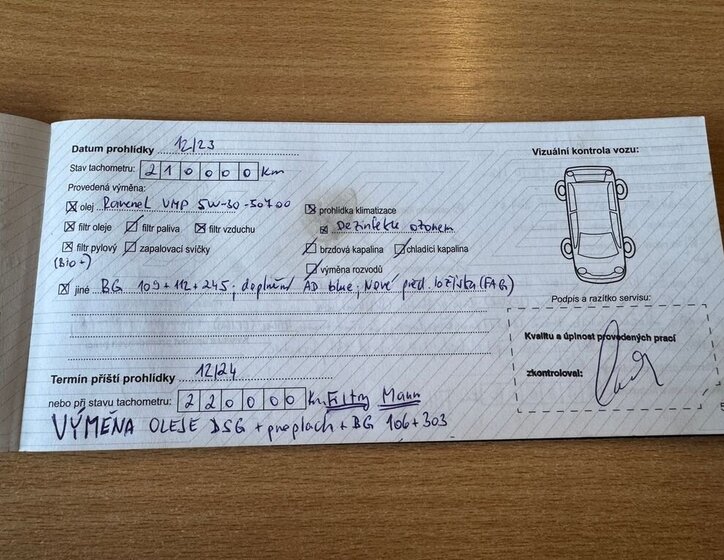 Datum prohlídky 12/23
Stav tachometru: 210000 km
Provedená výměna:
olej Ravenol VMP 5W-30 - 50700
filtr oleje filtr paliva filtr vzduchu
filtr pylový zapalovací svíčky
(Bio+)
jiné BG 109+112+245; doplnění AD blue; Nové před. ložiska (FAG)
prohlídka klimatizace
Dezinfekce ozonem
brzdová kapalina chladící kapalina
výměna rozvodů
Termín příští prohlídky 12/24
nebo při stavu tachometru: 220000 Km Filtry Mann
VÝMĚNA OLEJE DSG + proplach + BG 106+303
Vizuální kontrola vozu:
Podpis a razítko servisu:
Kvalitu a úplnost provedených prací
zkontroloval: